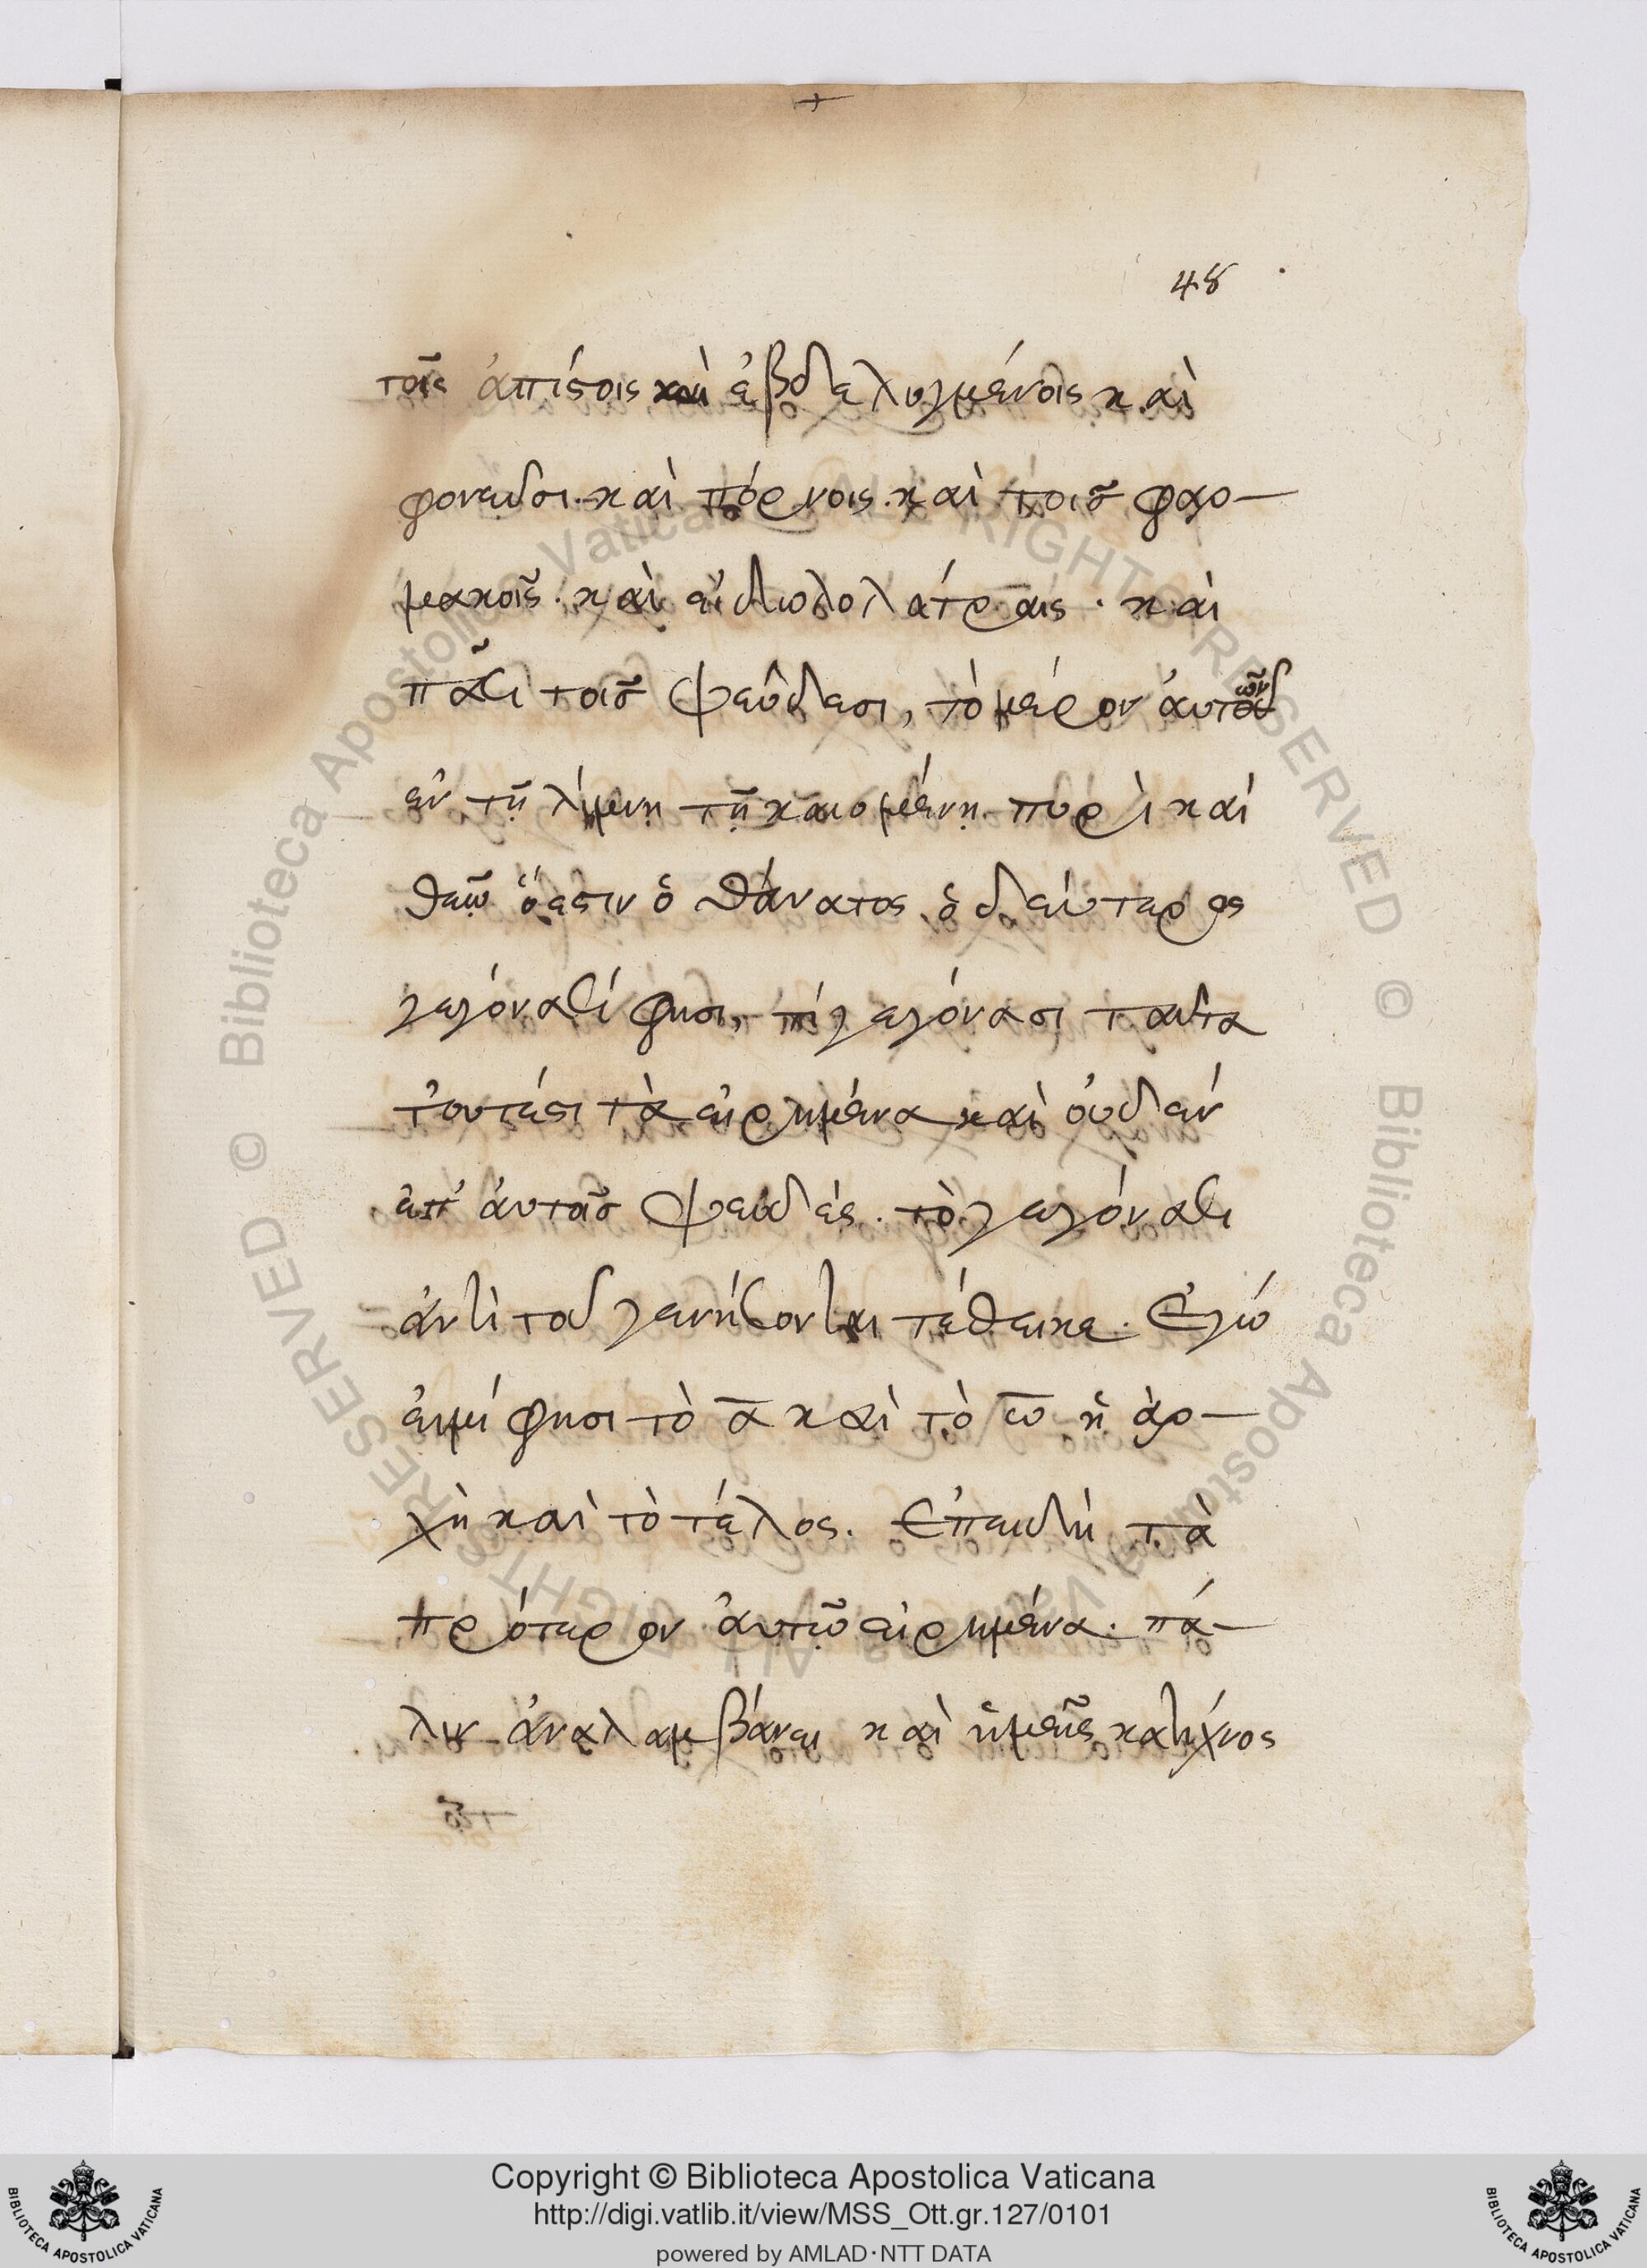 48
τοῖς ἀπίστοις καὶ ἐβδελυγμένοις καὶ
φονεῦσι. καὶ πόρνοις. καὶ τοῖς φαρ-
μακοῖς. καὶ εἰδωλολάτραις. καὶ
πᾶσι τοῖς ψεύδεσι, τὸ μέρον ἀυτῶν
ἐν τῇ λίμνῃ τῇ καιομένῃ πυρὶ καὶ
θείῳ ὅ ἐστιν ὁ θάνατος ὁ δεύτερος
γεγόνασί φησι, γεγόνασι ταῦτα
τουτέστι τὰ εἰρημένα καὶ ὀυδὲν
ἐπ' ἀυτοῖς ψευδές. τὸ γεγόνασι
ἀντὶ τοῦ γενήσονται τέθεικε. Ἐγώ
εἰμί φησι τὸ α καὶ τὸ ω ἡ ἀρ-
χὴ καὶ τὸ τέλος. Ἐπειδὴ τὰ
πρότερον ἀυτῷ εἰρημένα. πά-
λιν ἀναλαμβάνει καὶ ἡμεῖς κατίχνος
© Biblioteca Apostolica Vaticana ALL RIGHTS RESERVED
© Biblioteca Apostolica Vaticana ALL RIGHTS RESERVED
Copyright © Biblioteca Apostolica Vaticana
http://digi.vatlib.it/view/MSS_Ott.gr.127/0101
powered by AMLAD·NTT DATA
BIBLIOTECA APOSTOLICA VATICANA
BIBLIOTECA APOSTOLICA VATICANA